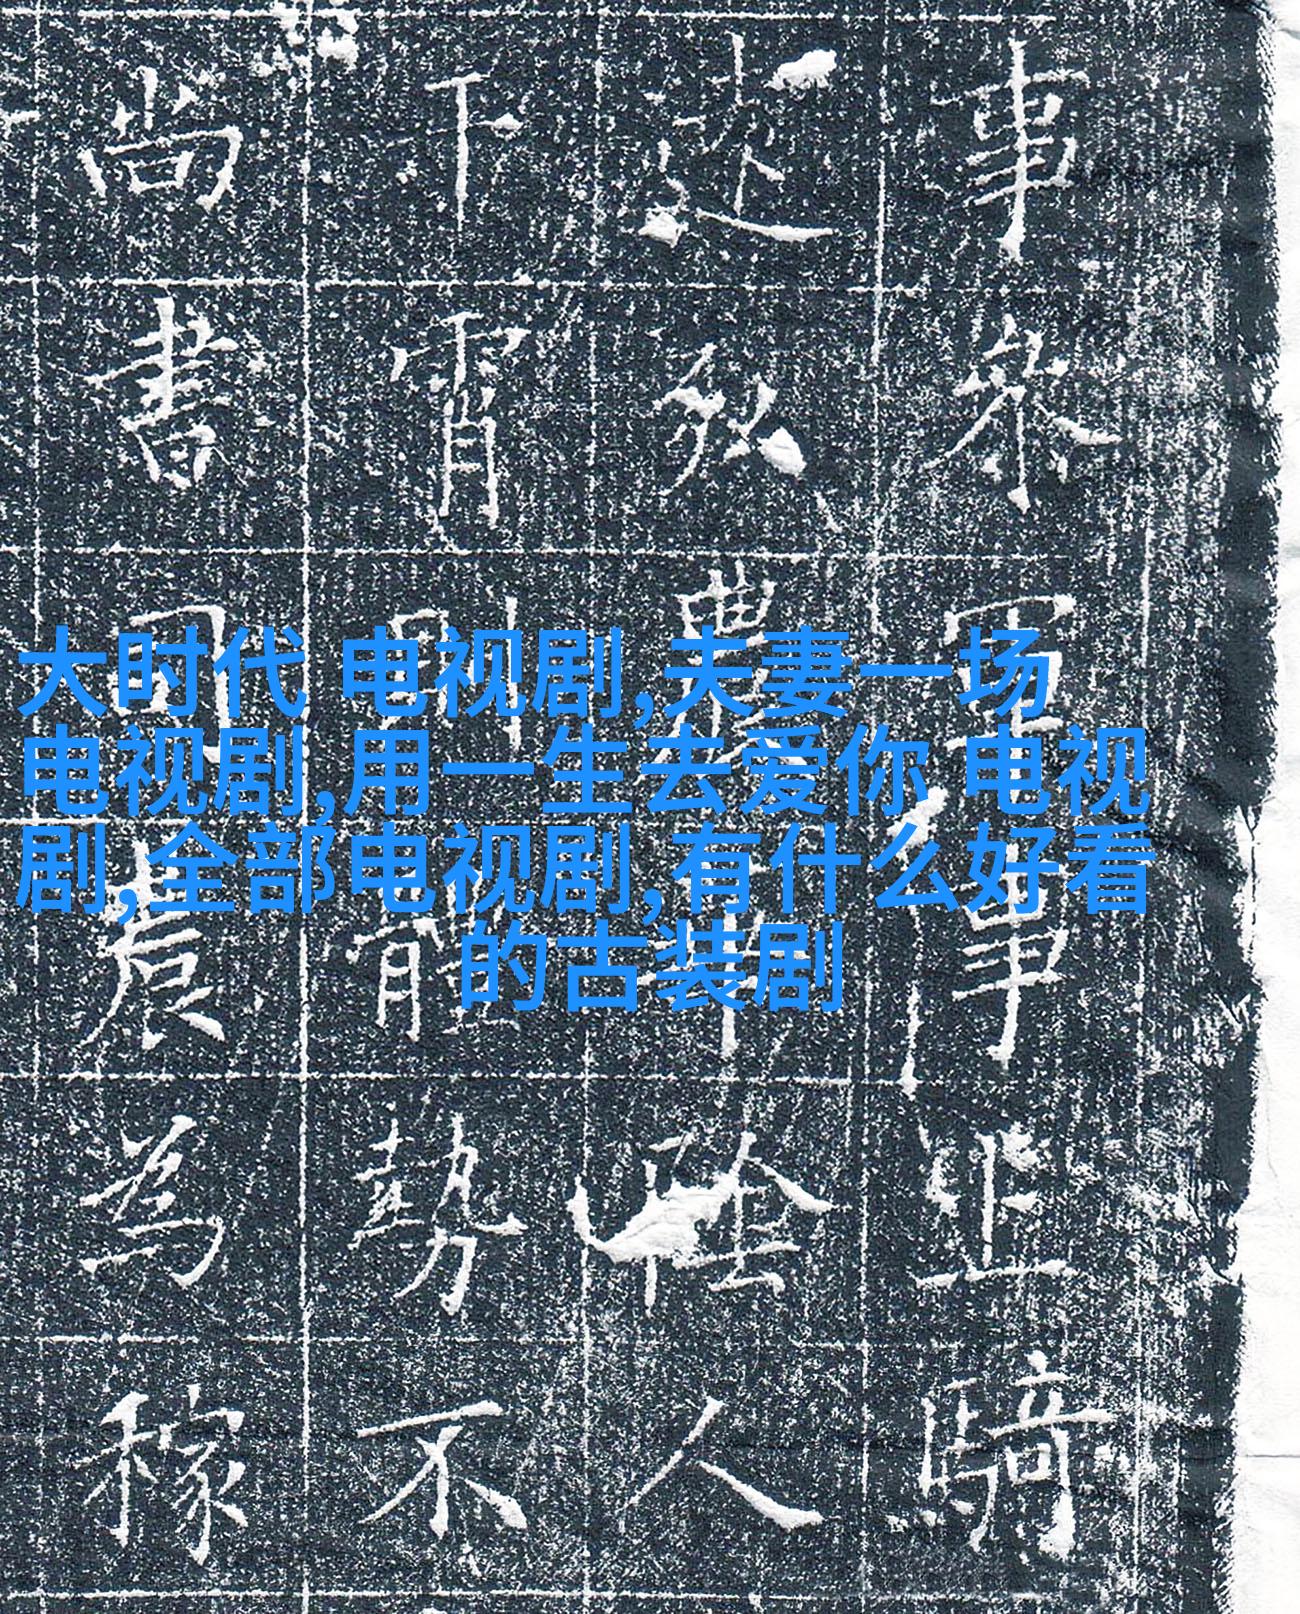 大时代 电视剧,夫妻一场
电视剧,用一生去爱你 电视
剧,全部电视剧,有什么好看
的古装剧
事參軍事上騎
弘農華陰人
下霄則體勢不
尚書爲稼